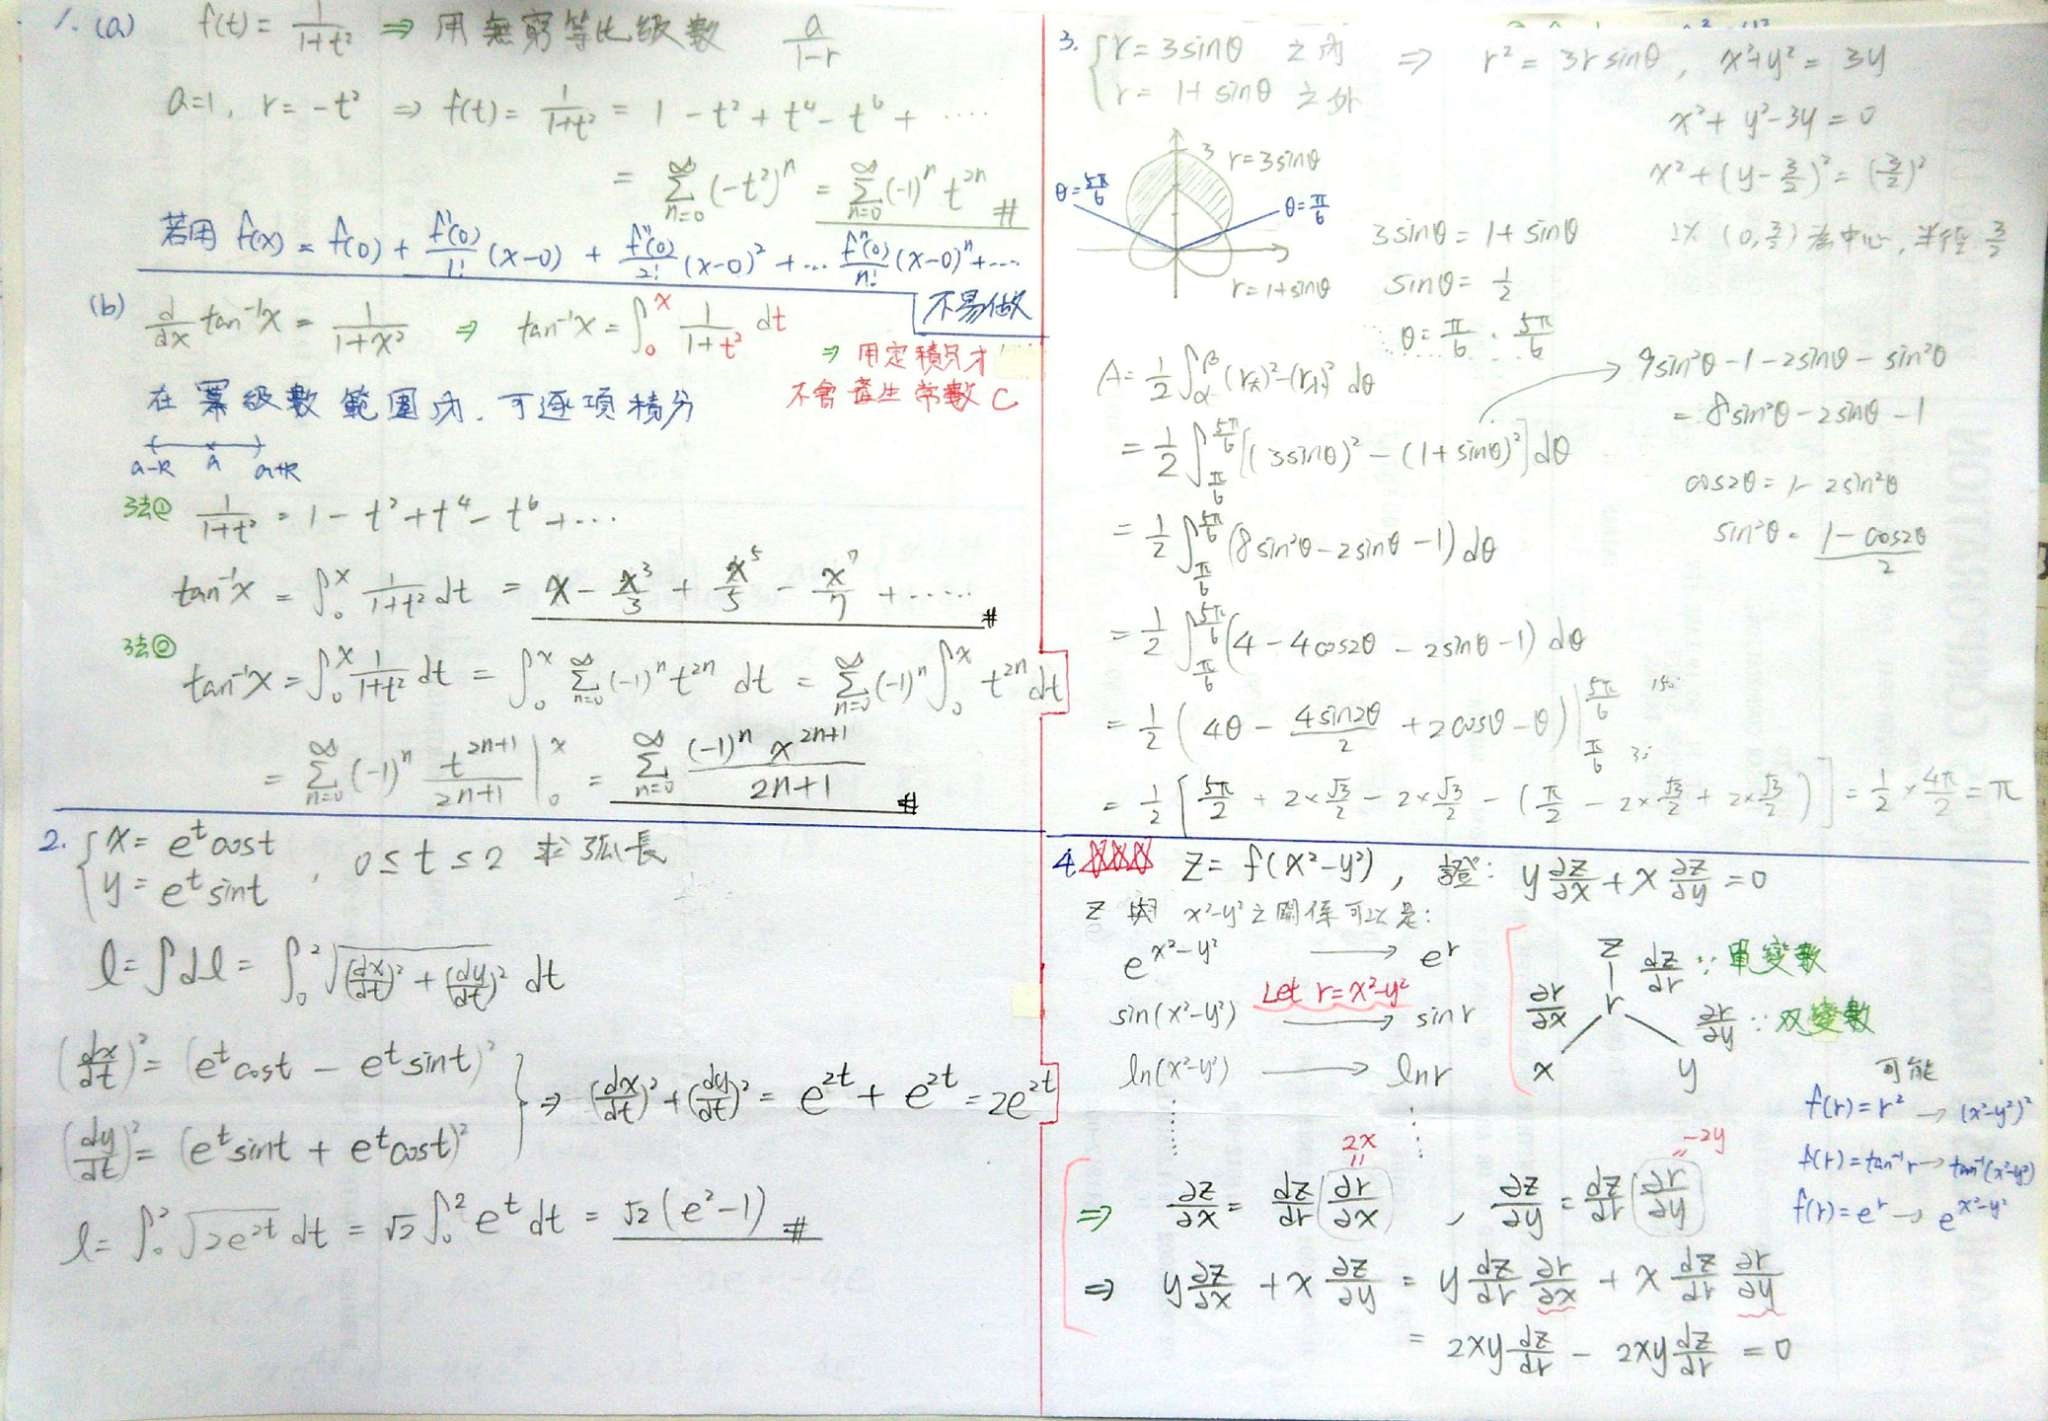 1. (a) f(t) = 1/(1+t²) ⇒ 用無窮等比級數 a/(1-r)
a=1, r=-t² ⇒ f(t) = 1/(1+t²) = 1 - t² + t⁴ - t⁶ + ....
= ∑_{n=0}^{∞} (-t²)ⁿ = ∑_{n=0}^{∞} (-1)ⁿ t²ⁿ #
若用 f(x) = f(0) + f'(0)/1! (x-0) + f''(0)/2! (x-0)² + ... fⁿ(0)/n! (x-0)ⁿ + ....
不易做
(b) d/dx tan⁻¹x = 1/(1+x²) ⇒ tan⁻¹x = ∫₀ˣ 1/(1+t²) dt
⇒ 用定積分才
不會產生常數 C
在冪級數範圍內, 可逐項積分
a-R a a+R
法① 1/(1+t²) = 1 - t² + t⁴ - t⁶ + ...
tan⁻¹x = ∫₀ˣ 1/(1+t²) dt = x - x³/3 + x⁵/5 - x⁷/7 + ..... #
法② tan⁻¹x = ∫₀ˣ 1/(1+t²) dt = ∫₀ˣ ∑_{n=0}^{∞} (-1)ⁿ t²ⁿ dt = ∑_{n=0}^{∞} (-1)ⁿ ∫₀ˣ t²ⁿ dt
= ∑_{n=0}^{∞} (-1)ⁿ t²ⁿ⁺¹/(2n+1) |₀ˣ = ∑_{n=0}^{∞} (-1)ⁿ x²ⁿ⁺¹/(2n+1) #
2. { x = eᵗcost
y = eᵗsint , 0 ≤ t ≤ 2 求弧長
l = ∫dl = ∫₀² √((dx/dt)² + (dy/dt)²) dt
(dx/dt)² = (eᵗcost - eᵗsint)²
(dy/dt)² = (eᵗsint + eᵗcost)²
} ⇒ (dx/dt)² + (dy/dt)² = e²ᵗ + e²ᵗ = 2e²ᵗ
l = ∫₀² √(2e²ᵗ) dt = √2 ∫₀² eᵗ dt = √2 (e²-1) #
3. { r = 3sinθ 之內 ⇒ r² = 3r sinθ, x²+y² = 3y
r = 1+sinθ 之外
x² + y² - 3y = 0
x² + (y - 3/2)² = (3/2)²
以 (0, 3/2) 為中心, 半徑 3/2
3 r=3sinθ
θ=5π/6
θ=π/6
r=1+sinθ
3sinθ = 1+sinθ
sinθ = 1/2
θ = π/6 , 5π/6
A = 1/2 ∫_α^β (r大)² - (r小)² dθ
9sin²θ - 1 - 2sinθ - sin²θ
= 8sin²θ - 2sinθ - 1
= 1/2 ∫_{π/6}^{5π/6} [(3sinθ)² - (1+sinθ)²] dθ
cos2θ = 1 - 2sin²θ
sin²θ = (1-cos2θ)/2
= 1/2 ∫_{π/6}^{5π/6} (8sin²θ - 2sinθ - 1) dθ
= 1/2 ∫_{π/6}^{5π/6} (4 - 4cos2θ - 2sinθ - 1) dθ
= 1/2 (4θ - 4sin2θ/2 + 2cosθ - θ) |_{π/6}^{5π/6}
= 1/2 [5π/2 + 2×√3/2 - 2×√3/2 - (π/2 - 2×√3/2 + 2×√3/2)] = 1/2 × 4π/2 = π
4. ☆☆☆ z = f(x²-y²), 證: y ∂z/∂x + x ∂z/∂y = 0
z 與 x²-y² 之關係可以是:
e^(x²-y²) → eʳ
Let r=x²-y²
sin(x²-y²) → sinr
ln(x²-y²) → lnr
z
dz/dr ∵ 單變數
r
∂r/∂x
∂r/∂y ∵ 双變數
x y
可能
f(r)=r² → (x²-y²)²
f(r)=tan⁻¹r → tan⁻¹(x²-y²)
f(r)=eʳ → e^(x²-y²)
2x -2y
⇒ ∂z/∂x = dz/dr (∂r/∂x) , ∂z/∂y = dz/dr (∂r/∂y)
⇒ y ∂z/∂x + x ∂z/∂y = y dz/dr ∂r/∂x + x dz/dr ∂r/∂y
= 2xy dz/dr - 2xy dz/dr = 0